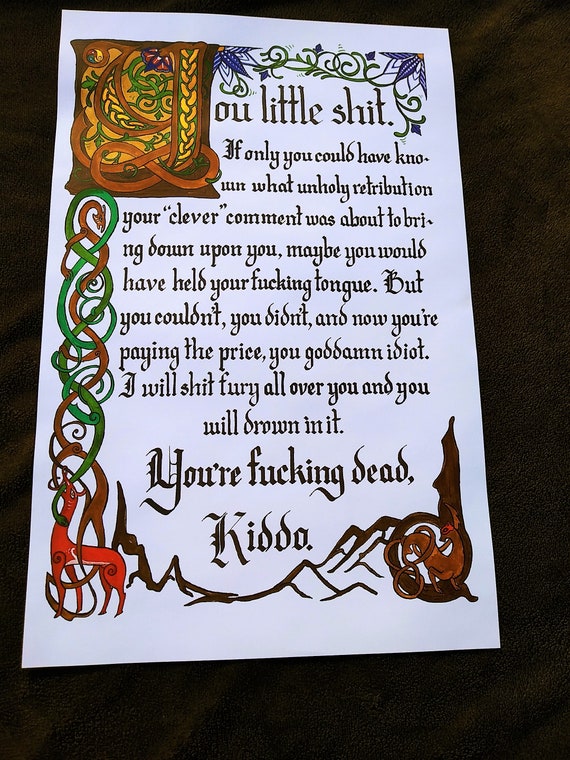 You little shit.
If only you could have kno-
wn what unholy retribution
your "clever" comment was about to bri-
ng down upon you, maybe you would
have held your fucking tongue. But
you couldn't, you didn't, and now you're
paying the price, you goddamn idiot.
I will shit fury all over you and you
will drown in it.
You're fucking dead,
Kiddo.